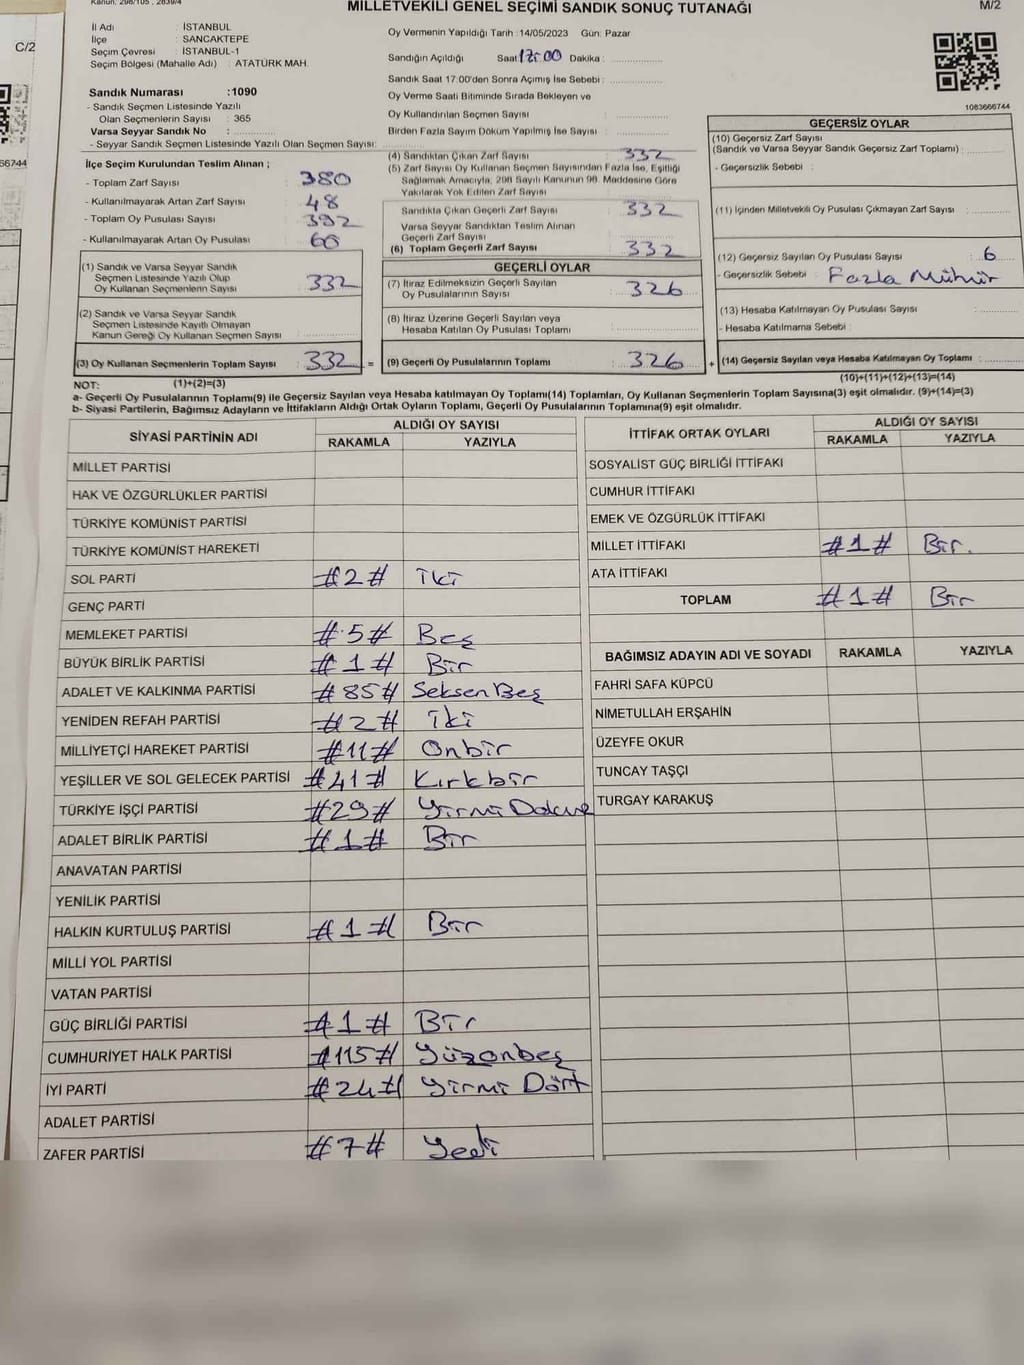 Kanun: 298/105 , 2839/4
MİLLETVEKİLİ GENEL SEÇİMİ SANDIK SONUÇ TUTANAĞI
M/2
C/2
İl Adı : İSTANBUL
İlçe : SANCAKTEPE
Seçim Çevresi : İSTANBUL-1
Seçim Bölgesi (Mahalle Adı) : ATATÜRK MAH.
Sandık Numarası :1090
- Sandık Seçmen Listesinde Yazılı
Olan Seçmenlerin Sayısı : 365
Varsa Seyyar Sandık No :
- Seyyar Sandık Seçmen Listesinde Yazılı Olan Seçmen Sayısı:
İlçe Seçim Kurulundan Teslim Alınan ;
- Toplam Zarf Sayısı : 380
- Kullanılmayarak Artan Zarf Sayısı : 48
- Toplam Oy Pusulası Sayısı : 392
- Kullanılmayarak Artan Oy Pusulası : 60
(1) Sandık ve Varsa Seyyar Sandık
Seçmen Listesinde Yazılı Olup
Oy Kullanan Seçmenlerin Sayısı : 332
(2) Sandık ve Varsa Seyyar Sandık
Seçmen Listesinde Kayıtlı Olmayan
Kanun Gereği Oy Kullanan Seçmen Sayısı :
(3) Oy Kullanan Seçmenlerin Toplam Sayısı : 332 =
Oy Vermenin Yapıldığı Tarih :14/05/2023 Gün: Pazar
Sandığın Açıldığı Saat 17:00 Dakika :
Sandık Saat 17:00'den Sonra Açımış İse Sebebi :
Oy Verme Saati Bitiminde Sırada Bekleyen ve
Oy Kullandırılan Seçmen Sayısı :
Birden Fazla Sayım Döküm Yapılmış İse Sayısı :
(4) Sandıktan Çıkan Zarf Sayısı : 332
(5) Zarf Sayısı Oy Kullanan Seçmen Sayısından Fazla İse, Eşitliği
Sağlamak Amacıyla, 298 Sayılı Kanunun 98. Maddesine Göre
Yakılarak Yok Edilen Zarf Sayısı :
Sandıkta Çıkan Geçerli Zarf Sayısı : 332
Varsa Seyyar Sandıktan Teslim Alınan
Geçerli Zarf Sayısı :
(6) Toplam Geçerli Zarf Sayısı : 332
GEÇERLİ OYLAR
(7) İtiraz Edilmeksizin Geçerli Sayılan
Oy Pusulalarının Sayısı : 326
(8) İtiraz Üzerine Geçerli Sayılan veya
Hesaba Katılan Oy Pusulası Toplamı :
(9) Geçerli Oy Pusulalarının Toplamı : 326 +
1083666744
66744
GEÇERSİZ OYLAR
(10) Geçersiz Zarf Sayısı
(Sandık ve Varsa Seyyar Sandık Geçersiz Zarf Toplamı) :
- Geçersizlik Sebebi :
(11) İçinden Milletvekili Oy Pusulası Çıkmayan Zarf Sayısı :
(12) Geçersiz Sayılan Oy Pusulası Sayısı : 6
- Geçersizlik Sebebi : Fazla Mühür
(13) Hesaba Katılmayan Oy Pusulası Sayısı :
- Hesaba Katılmama Sebebi :
(14) Geçersiz Sayılan veya Hesaba Katılmayan Oy Toplamı :
NOT: (1)+(2)=(3) (10)+(11)+(12)+(13)=(14)
a- Geçerli Oy Pusulalarının Toplamı(9) ile Geçersiz Sayılan veya Hesaba katılmayan Oy Toplamı(14) Toplamları, Oy Kullanan Seçmenlerin Toplam Sayısına(3) eşit olmalıdır. (9)+(14)=(3)
b- Siyasi Partilerin, Bağımsız Adayların ve İttifakların Aldığı Ortak Oyların Toplamı, Geçerli Oy Pusulalarının Toplamına(9) eşit olmalıdır.
SİYASİ PARTİNİN ADI ALDIĞI OY SAYISI
RAKAMLA YAZIYLA
MİLLET PARTİSİ
HAK VE ÖZGÜRLÜKLER PARTİSİ
TÜRKİYE KOMÜNİST PARTİSİ
TÜRKİYE KOMÜNİST HAREKETİ
SOL PARTİ #2# iki
GENÇ PARTİ
MEMLEKET PARTİSİ #5# Beş
BÜYÜK BİRLİK PARTİSİ #1# Bir
ADALET VE KALKINMA PARTİSİ #85# Seksen Beş
YENİDEN REFAH PARTİSİ #2# iki
MİLLİYETÇİ HAREKET PARTİSİ #11# Onbir
YEŞİLLER VE SOL GELECEK PARTİSİ #41# Kırkbir
TÜRKİYE İŞÇİ PARTİSİ #29# Yirmi Dokuz
ADALET BİRLİK PARTİSİ #1# Bir
ANAVATAN PARTİSİ
YENİLİK PARTİSİ
HALKIN KURTULUŞ PARTİSİ #1# Bir
MİLLİ YOL PARTİSİ
VATAN PARTİSİ
GÜÇ BİRLİĞİ PARTİSİ #1# Bir
CUMHURİYET HALK PARTİSİ #115# Yüzonbeş
İYİ PARTİ #24# Yirmi Dört
ADALET PARTİSİ
ZAFER PARTİSİ #7# Yedi
İTTİFAK ORTAK OYLARI ALDIĞI OY SAYISI
RAKAMLA YAZIYLA
SOSYALİST GÜÇ BİRLİĞİ İTTİFAKI
CUMHUR İTTİFAKI
EMEK VE ÖZGÜRLÜK İTTİFAKI
MİLLET İTTİFAKI #1# Bir.
ATA İTTİFAKI
TOPLAM #1# Bir
BAĞIMSIZ ADAYIN ADI VE SOYADI RAKAMLA YAZIYLA
FAHRİ SAFA KÜPCÜ
NİMETULLAH ERŞAHİN
ÜZEYFE OKUR
TUNCAY TAŞÇI
TURGAY KARAKUŞ